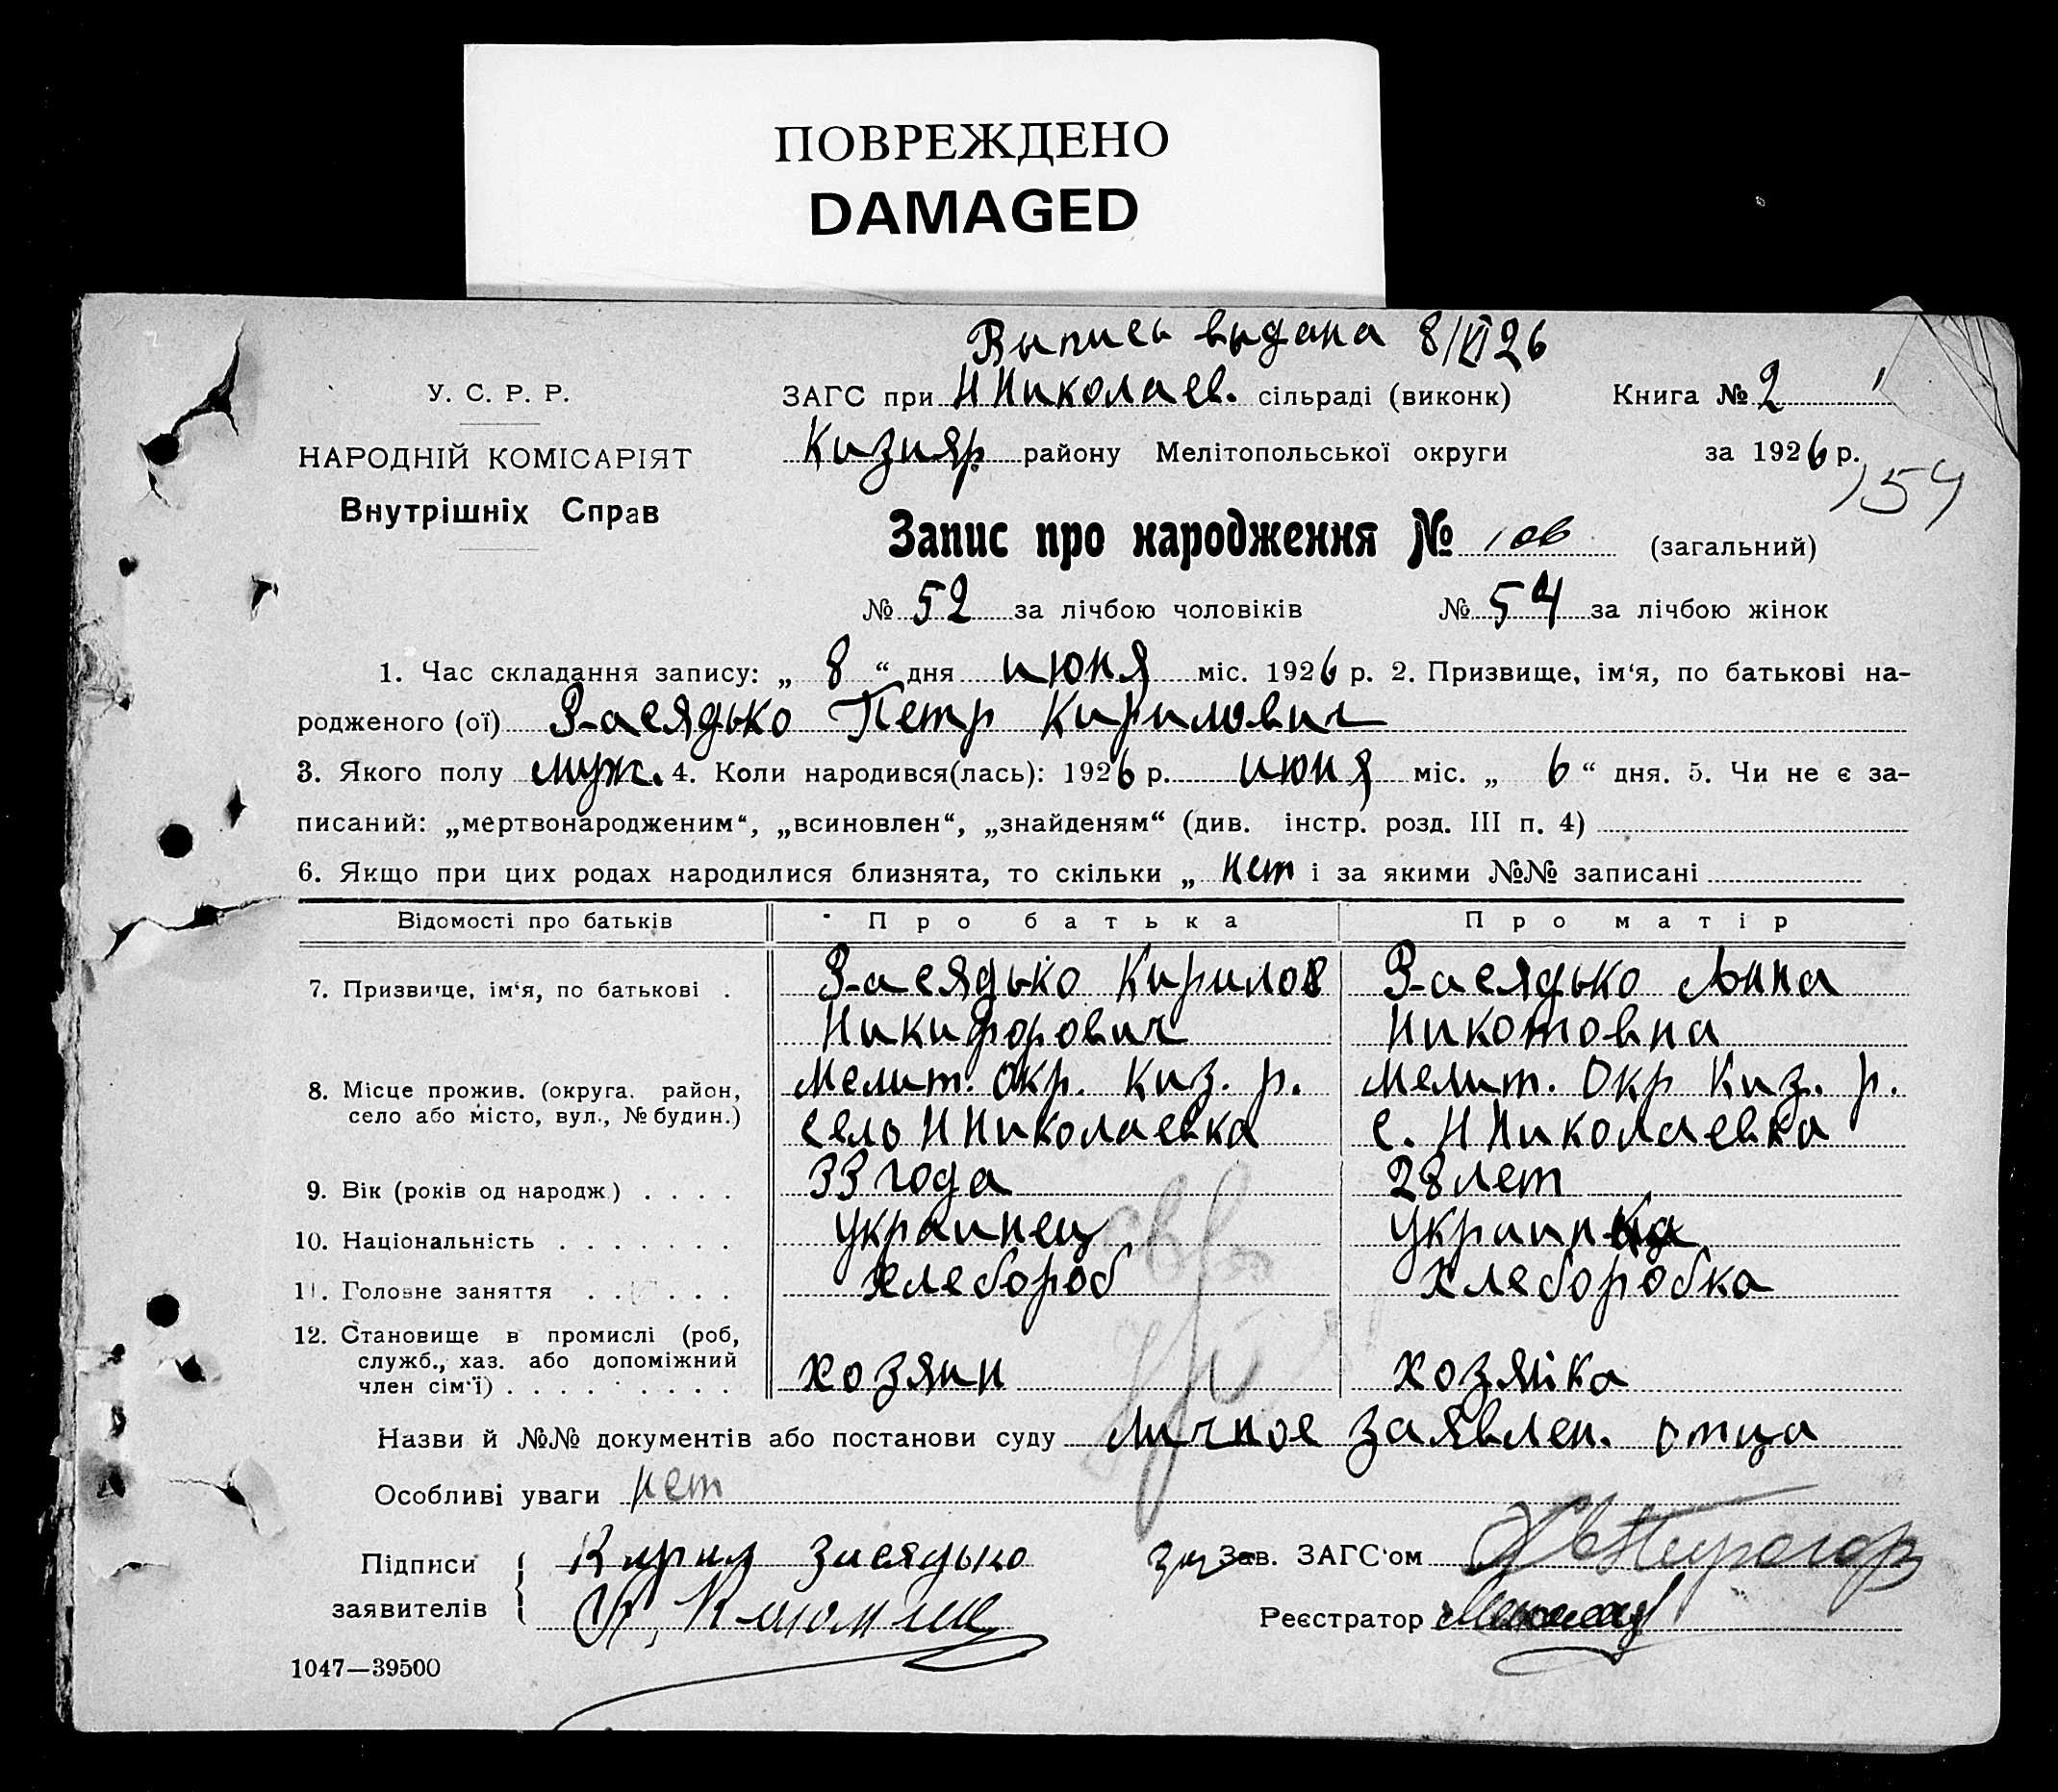 ПОВРЕЖДЕНО
DAMAGED
Выпись выдана 8/VI 26
У. С. Р. Р.
ЗАГС при Н Николаев. сільраді (виконк)
Книга № 2
НАРОДНІЙ КОМІСАРІЯТ
Кизияр. району Мелітопольської округи
за 1926 р.
Внутрішніх Справ
154
Запис про народження № 106 (загальний)
№ 52 за лічбою чоловіків № 54 за лічбою жінок
1. Час складання запису: „ 8 “ дня июня міс. 1926 р. 2. Призвище, ім‘я, по батькові на-
родженого (ої) Засядько Петр Кирилович
3. Якого полу муж. 4. Коли народився(лась): 1926 р. июня міс. „ 6 “ дня. 5. Чи не є за-
писаний: „мертвонародженим“, „всиновлен“, „знайденям“ (див. інстр. розд. III п. 4)
6. Якщо при цих родах народилися близнята, то скільки „ нет і за якими №№ записані
Відомості про батьків Про батька Про матір
7. Призвище, ім‘я, по батькові . Засядько Кирилов Засядько Анна
Никифорович Никотовна
8. Місце прожив. (округа. район, Мелит. Окр. Киз. р. Мелит. Окр Киз. р.
село або місто, вул., № будин.) село Н Николаевка с. Н Николаевка
9. Вік (років од народж.) . . . . 33 года 28 лет
10. Національність . . . . . . . украинец украинка
11. Головне заняття . . . . . . хлебороб хлеборобка
12. Становище в промислі (роб,
служб., хаз. або допоміжний
член сім‘ї) . . . . . . . . . хозяин хозяйка
Назви й №№ документів або постанови суду личное заявлен. отца
Особливі уваги нет
Підписи Кирил Засядько
за Зав. ЗАГС‘ом
заявителів
Реєстратор
1047—39500